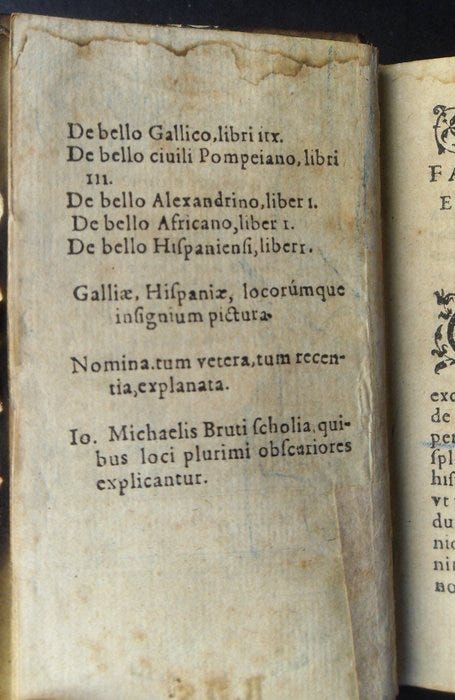 De bello Gallico, libri iix.
De bello ciuili Pompeiano, libri
III.
De bello Alexandrino, liber I.
De bello Africano, liber I.
De bello Hiſpanienſi, liber I.
Galliæ, Hiſpaniæ, locorúmque
inſignium pictura.
Nomina, tum vetera, tum recen-
tia, explanata.
Io. Michaelis Bruti ſcholia, qui-
bus loci plurimi obſcuriores
explicantur.
FA
E
exc
de
per
ſpl
hiſ
vt
du
nic
nin
no